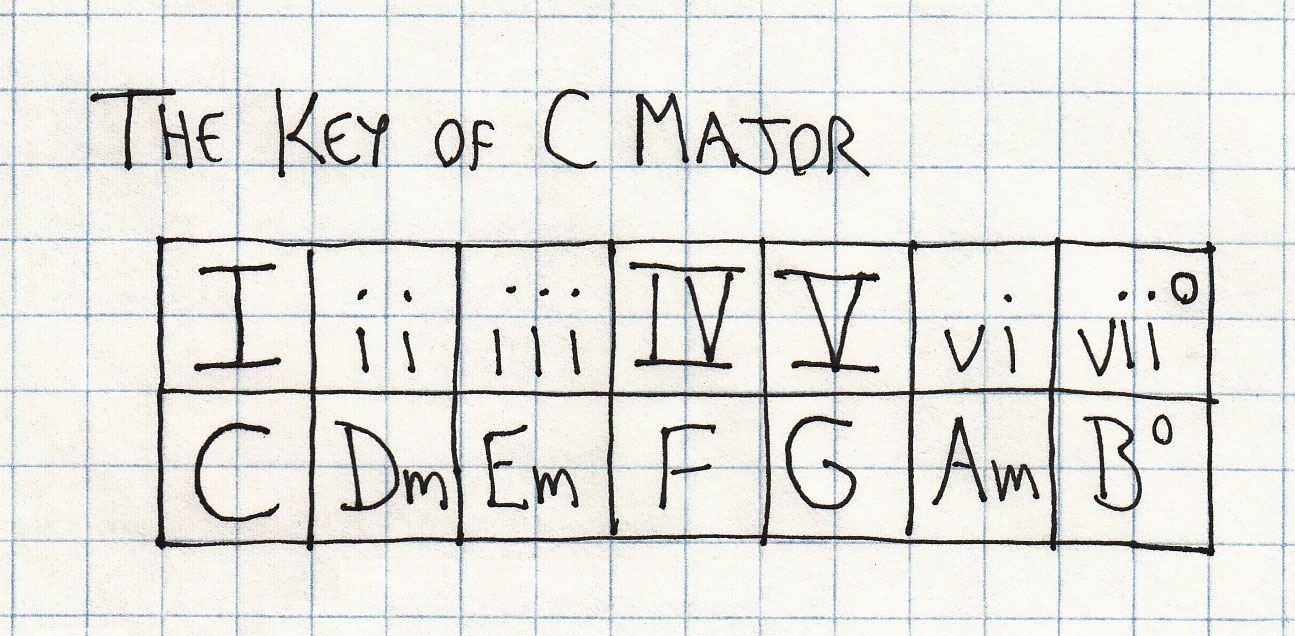 THE KEY OF C MAJOR
I ii iii IV V vi vii°
C Dm Em F G Am B°